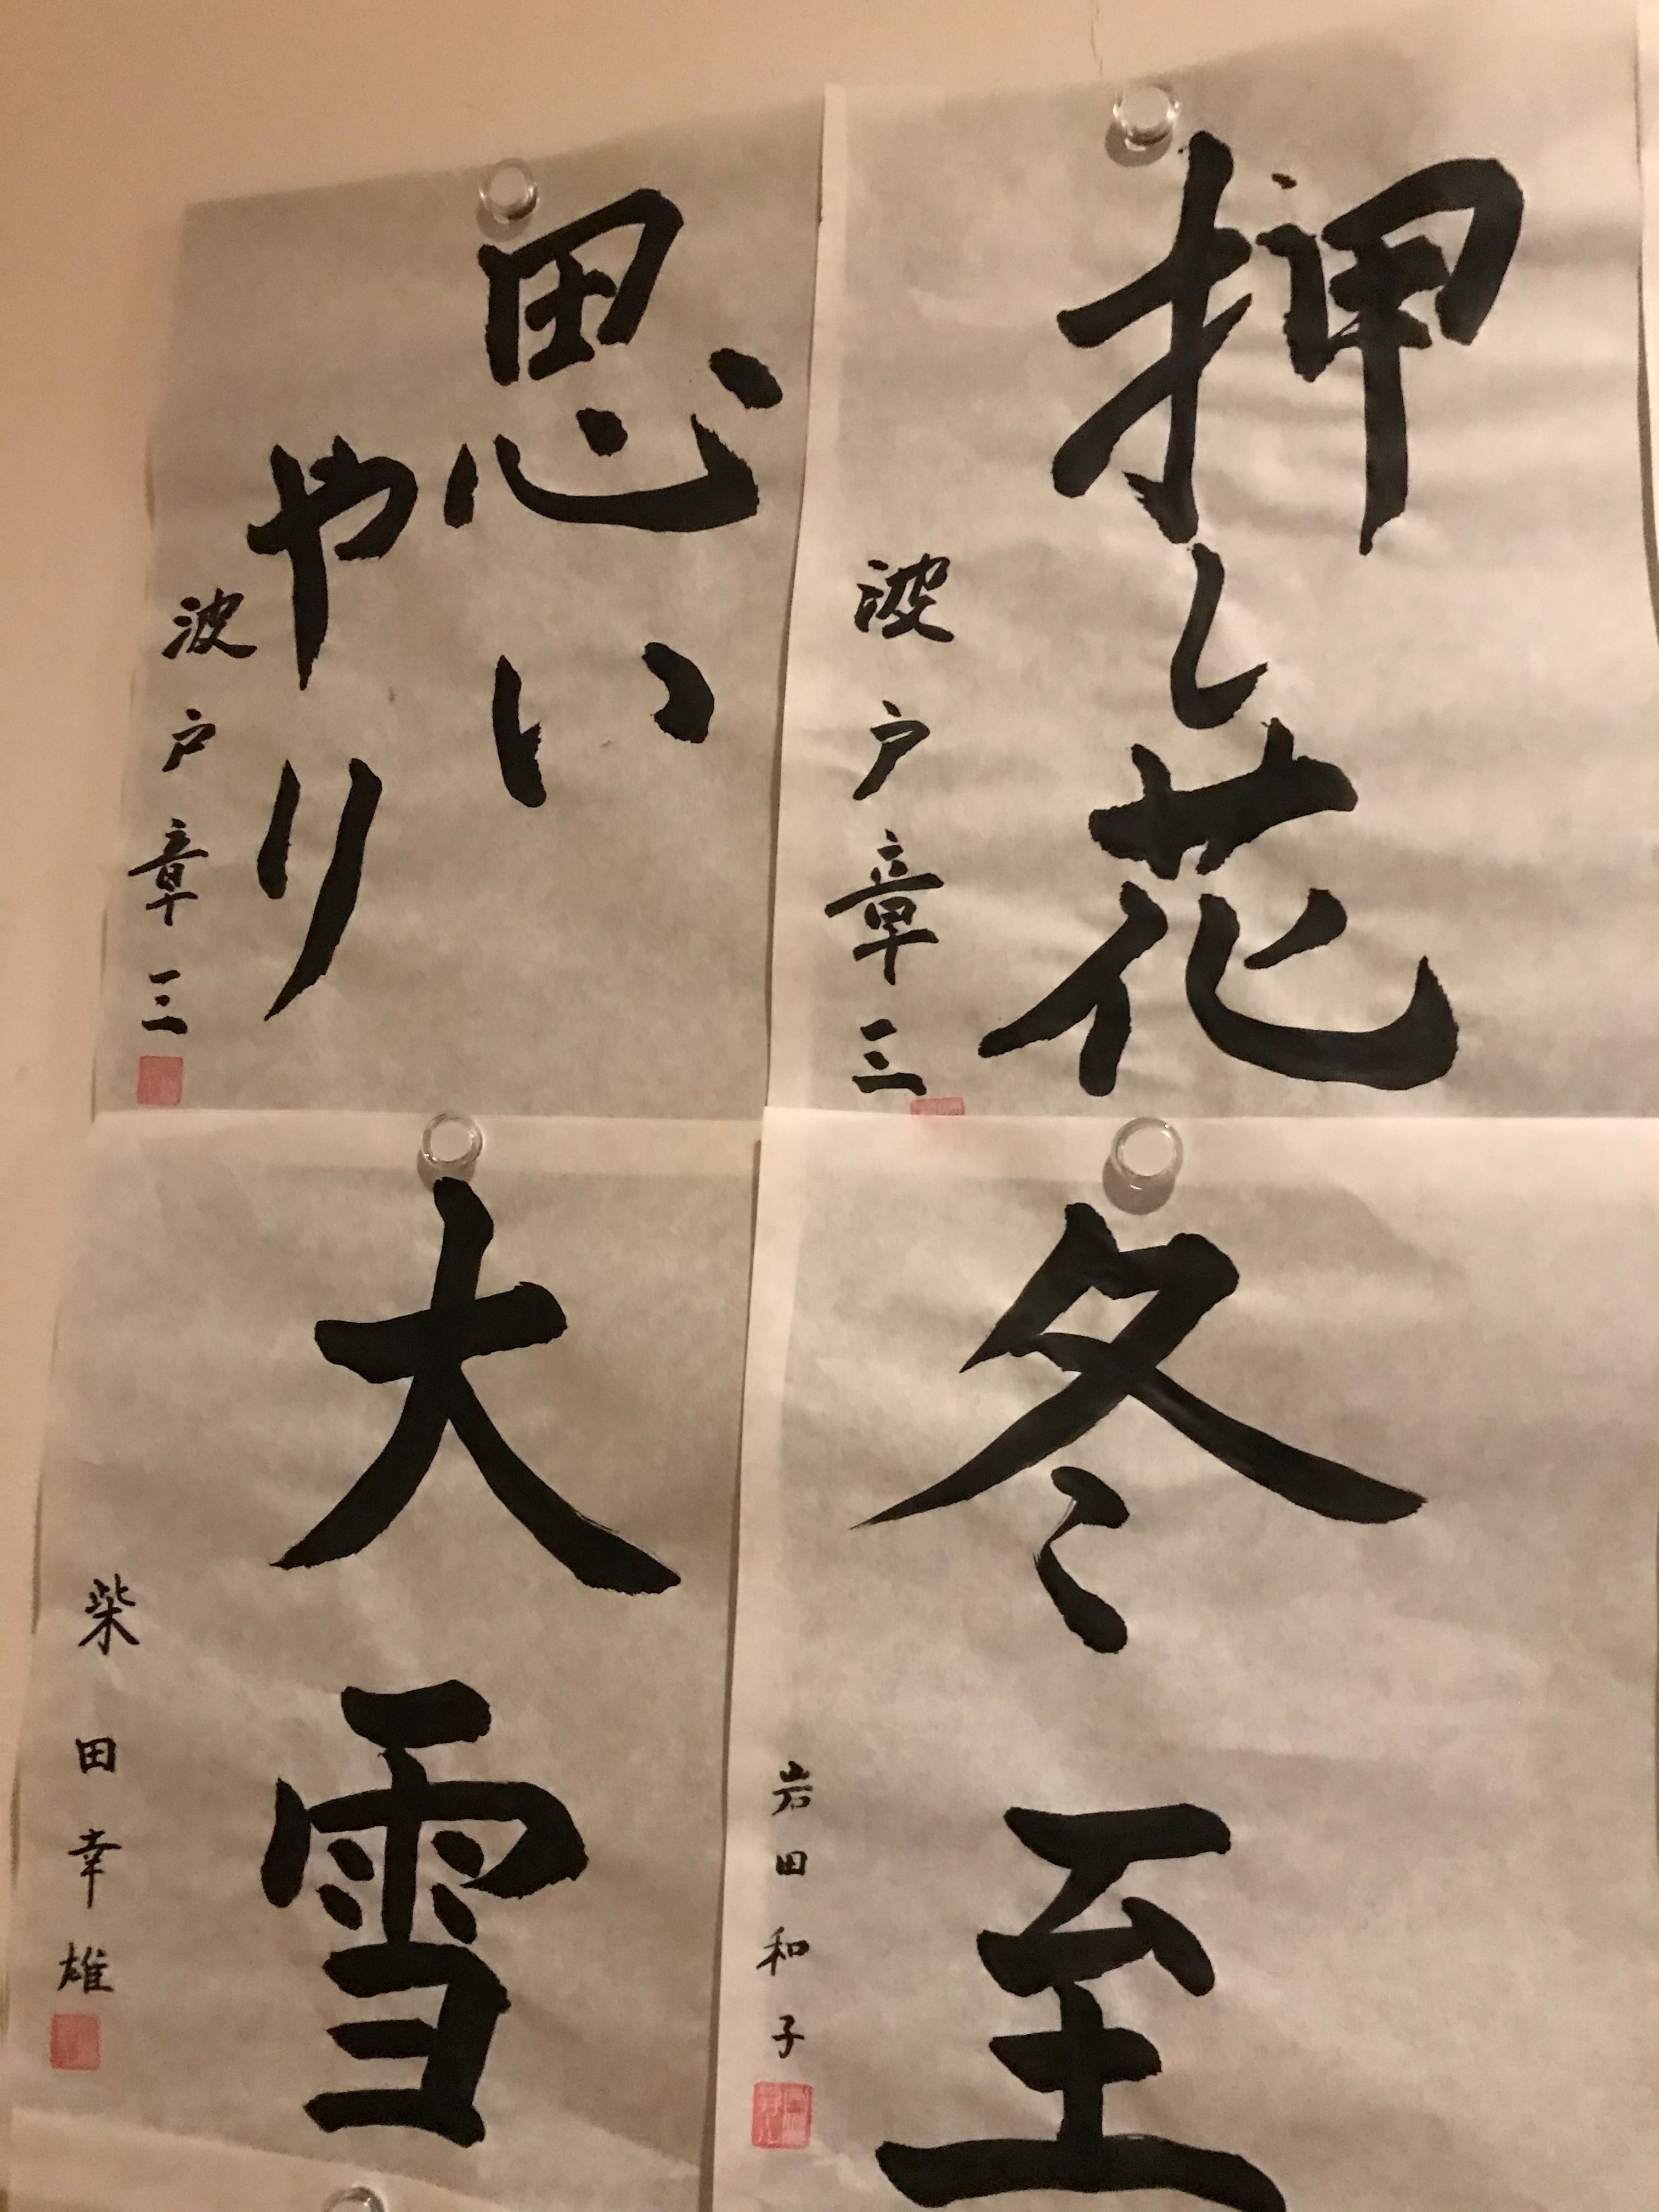 押し花
波戸章三
思い
やり
波戸章三
冬至
岩田和子
大雪
柴田幸雄